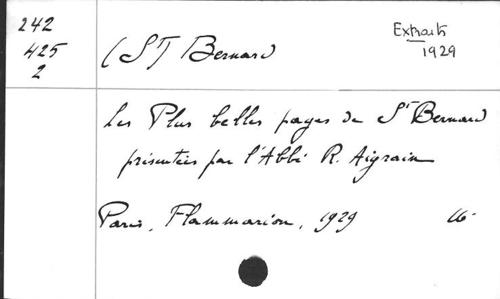 242
425
2
Extraits
1929
(St Bernard
Les Plus belles pages de St Bernard
présentées par l'Abbé R. Aigrain
Paris, Flammarion, 1929